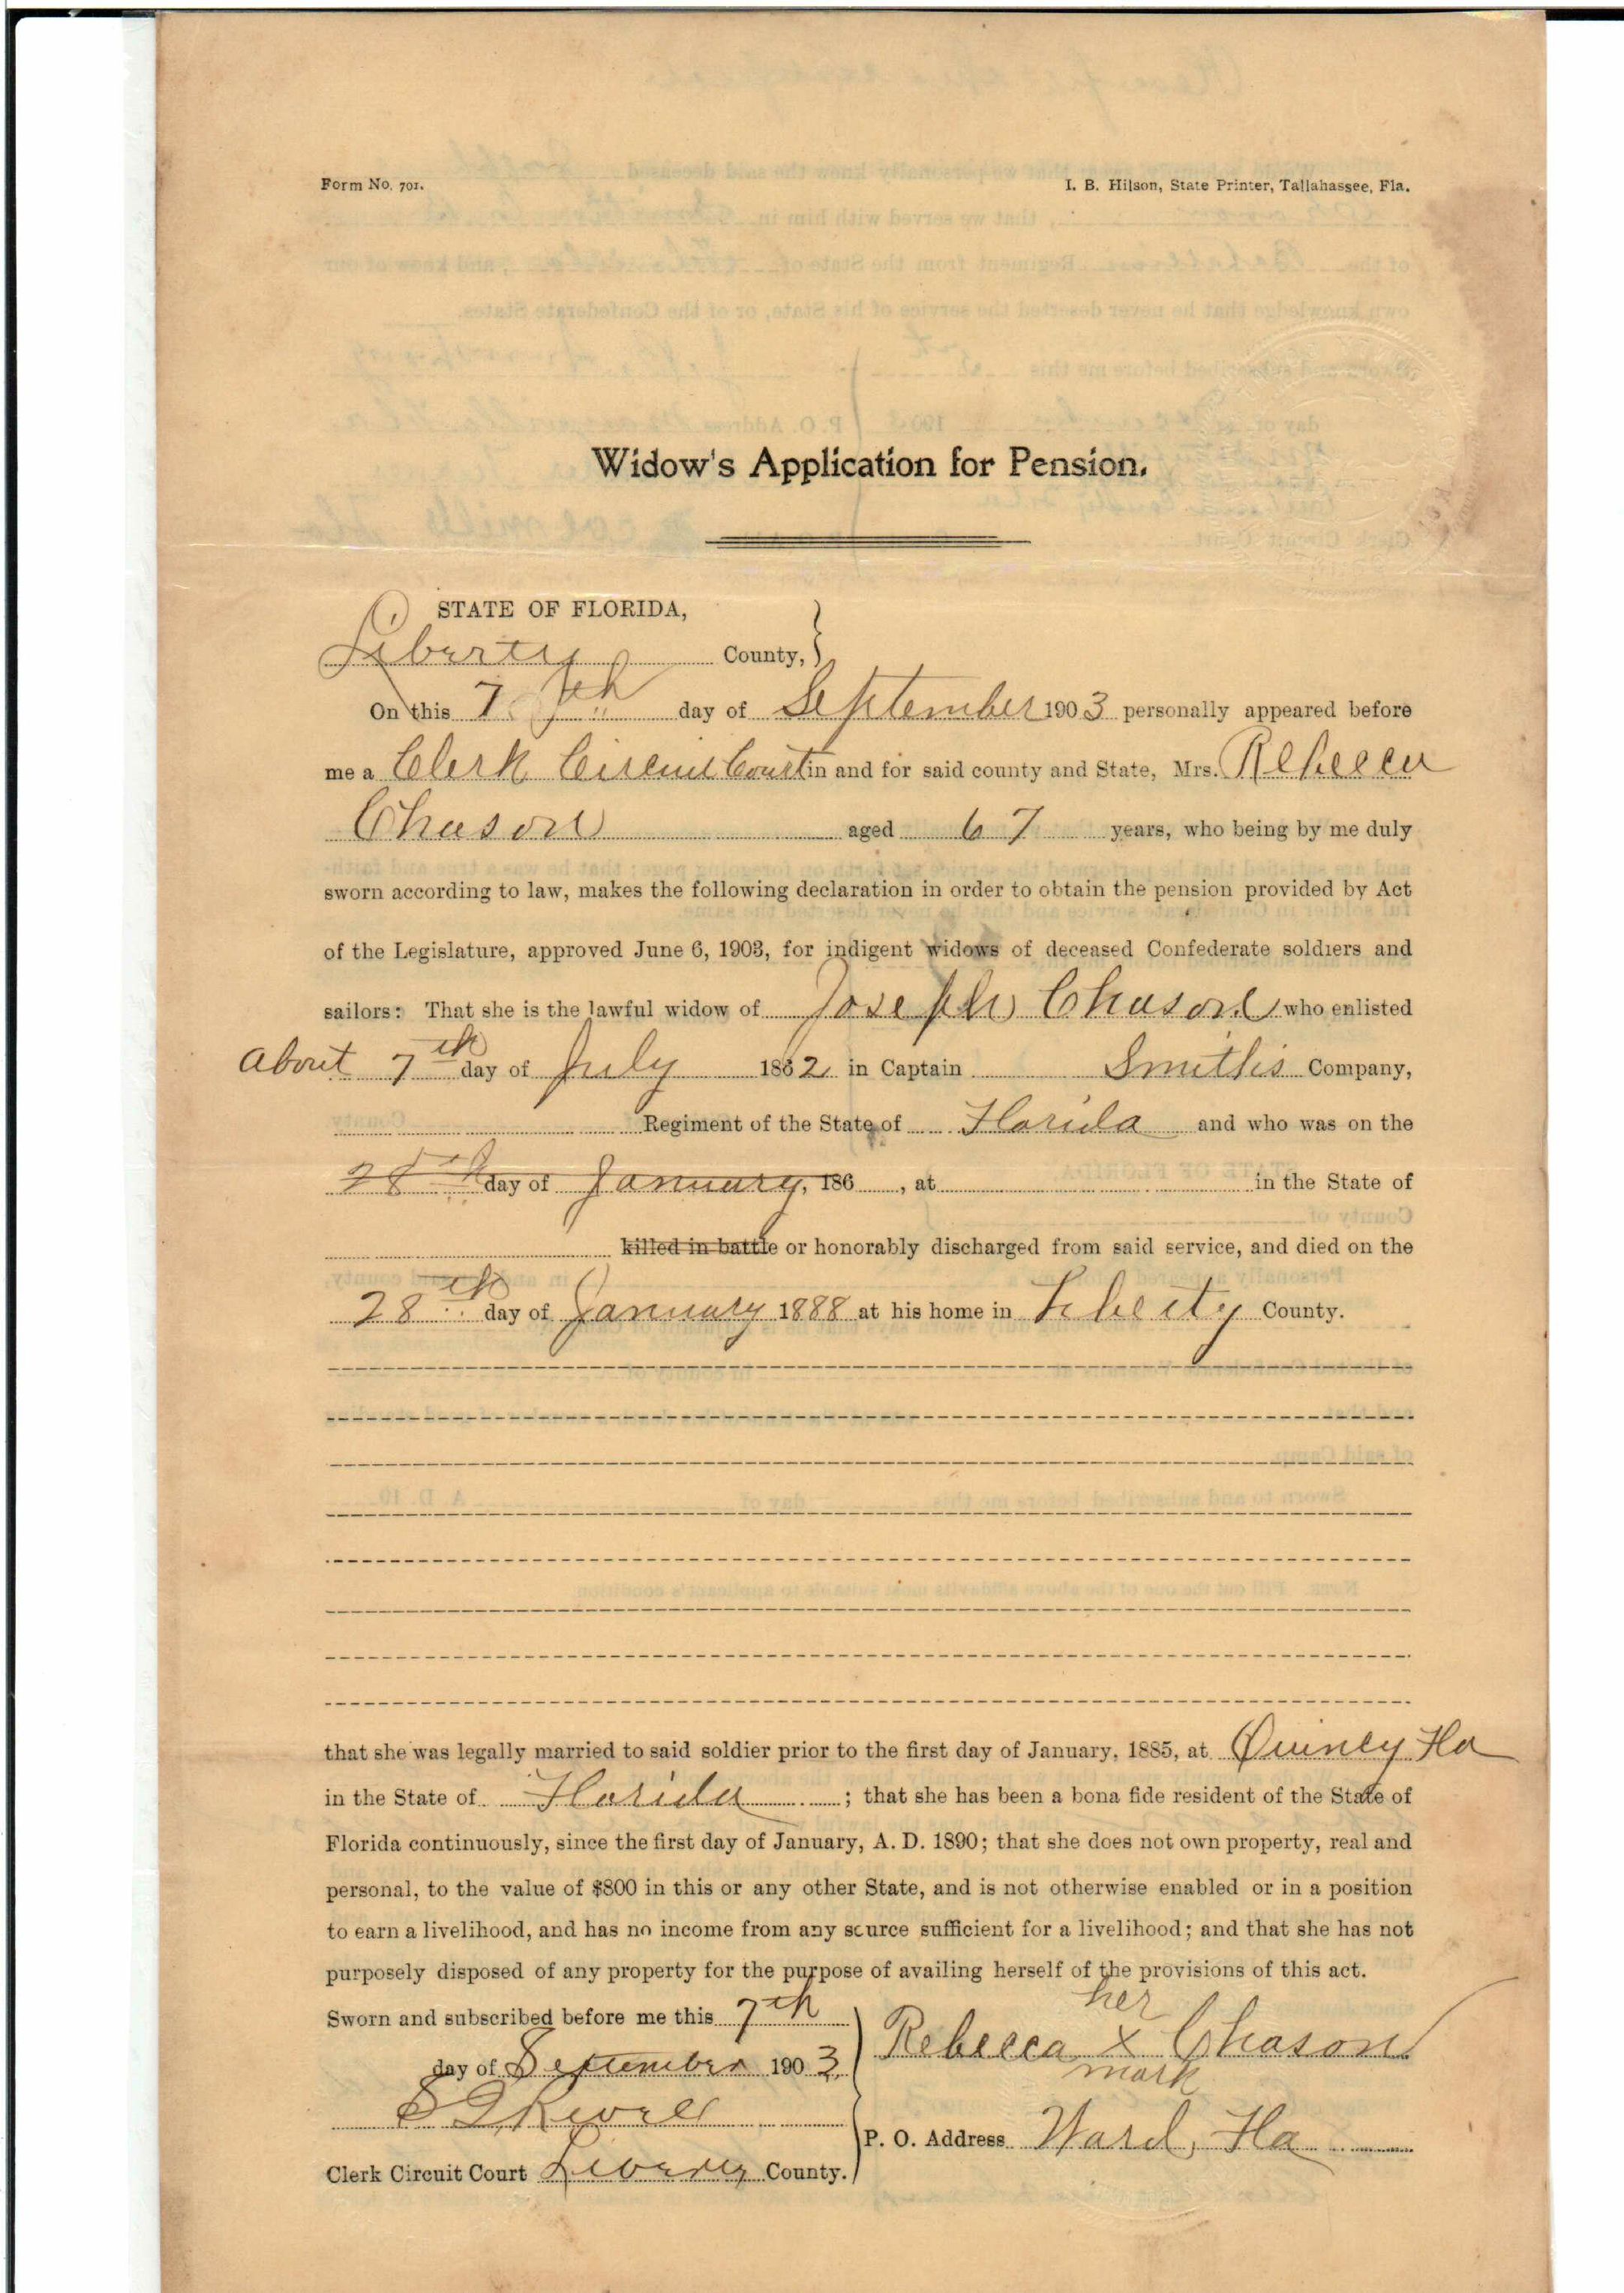 Form No. 701. I. B. Hilson, State Printer, Tallahassee, Fla.
Widow's Application for Pension.
STATE OF FLORIDA,
Liberty County, }
On this 7th day of September 1903 personally appeared before
me a Clerk Circuit Court in and for said county and State, Mrs. Rebecca
Chason aged 67 years, who being by me duly
sworn according to law, makes the following declaration in order to obtain the pension provided by Act
of the Legislature, approved June 6, 1903, for indigent widows of deceased Confederate soldiers and
sailors: That she is the lawful widow of Joseph Chason who enlisted
about 7th day of July 1862 in Captain Smith's Company,
Regiment of the State of Florida and who was on the
28th day of January, 186 , at in the State of
killed in battle or honorably discharged from said service, and died on the
28th day of January 1888 at his home in Liberty County.
that she was legally married to said soldier prior to the first day of January, 1885, at Quincy Fla
in the State of Florida ; that she has been a bona fide resident of the State of
Florida continuously, since the first day of January, A. D. 1890; that she does not own property, real and
personal, to the value of $800 in this or any other State, and is not otherwise enabled or in a position
to earn a livelihood, and has no income from any source sufficient for a livelihood; and that she has not
purposely disposed of any property for the purpose of availing herself of the provisions of this act.
Sworn and subscribed before me this 7th
day of September 1903
her
Rebecca x Chason
mark
Revell
P. O. Address Ward, Fla
Clerk Circuit Court Liberty County.